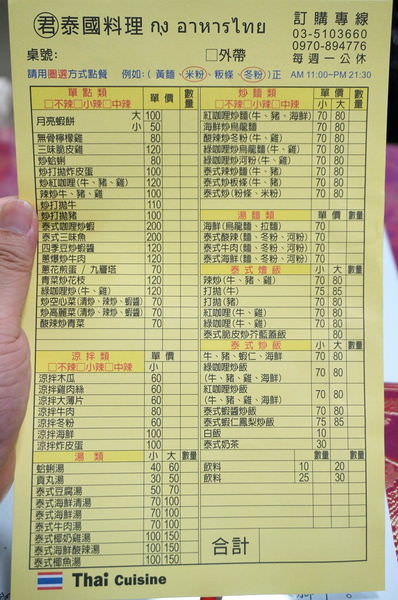 君泰國料理 กุง อาหารไทย
訂購專線
03-5103660
0970-894776
每週一公休
桌號:
□外帶
請用圈選方式點餐 例如:( 黃麵、米粉、粄條、冬粉 )正 AM 11:00~PM 21:30
單點類 單價 數量
□不辣□小辣□中辣
月亮蝦餅 大 100
小 50
無骨檸檬雞 80
三味脆皮雞 120
炒蛤蜊 80
炒打拋炸皮蛋 100
炒紅咖哩(牛、豬、雞) 100
辣炒(牛、豬、雞) 100
炒打拋牛 110
炒打拋豬 100
泰式咖哩炒蝦 200
泰式三味魚 200
四季豆炒蝦醬 120
蔥爆炒牛肉 100
蔥花煎蛋 / 九層塔
青菜炒花枝
綠咖哩炒(牛、雞)
炒空心菜(清炒、辣炒、蝦醬)
炒高麗菜(清炒、辣炒、蝦醬)
酸辣炒青菜
涼拌類 單價 數量
□不辣□小辣□中辣 小
涼拌木瓜 60
涼拌雞肉絲 60
涼拌大薄片 60
涼拌牛肉 80
涼拌冬粉 60
涼拌海鮮 100
涼拌炸皮蛋 100
湯類 小 大 數量
蛤蜊湯 40 60
貢丸湯 30 50
泰式豆腐湯 50 70
泰式海鮮清湯 70 100
泰式海鮮湯 70 100
泰式牛肉湯 70 100
泰式椰奶雞湯 100 150
泰式海鮮酸辣湯 100 150
泰式椰魚湯 100 150
炒麵類 單價 數量
□不辣□小辣□中辣 小 大
紅咖哩炒麵(牛、豬、海鮮) 70 80
海鮮炒烏龍麵 70 80
酸辣炒冬粉(牛、雞) 70 80
綠咖哩炒烏龍麵(牛、雞) 70 80
綠咖哩炒河粉(牛、雞) 70 80
泰式辣炒麵(牛、豬) 70 80
泰式炒粄條(牛、豬) 70 80
泰式炒(粉條、米粉) 70 80
湯麵類 單價 數量
海鮮(烏龍麵、拉麵) 70
泰式酸辣(麵、冬粉、河粉) 70
泰式牛肉(麵、冬粉、河粉) 70
泰式海鮮(麵、冬粉、河粉) 70
泰式燴飯 小 大 數量
辣炒(牛、豬、雞) 70 80
打拋(牛) 75 85
打拋(豬) 70 80
紅咖哩(牛、雞) 70 80
綠咖哩(牛、雞) 70 80
泰式脆皮炒芥藍蓋飯 80
泰式炒飯 小 大 數量
牛、豬、蝦仁、海鮮 70 80
綠咖哩炒飯
(牛、雞、海鮮) 70 80
紅咖哩炒飯
(牛、豬、雞、海鮮) 70 80
泰式蝦醬炒飯 70 80
泰式蝦仁鳳梨炒飯 75 85
白飯 10
泰式奶茶 30
小 大 數量
飲料 10 20
飲料 25 30
合計
Thai Cuisine